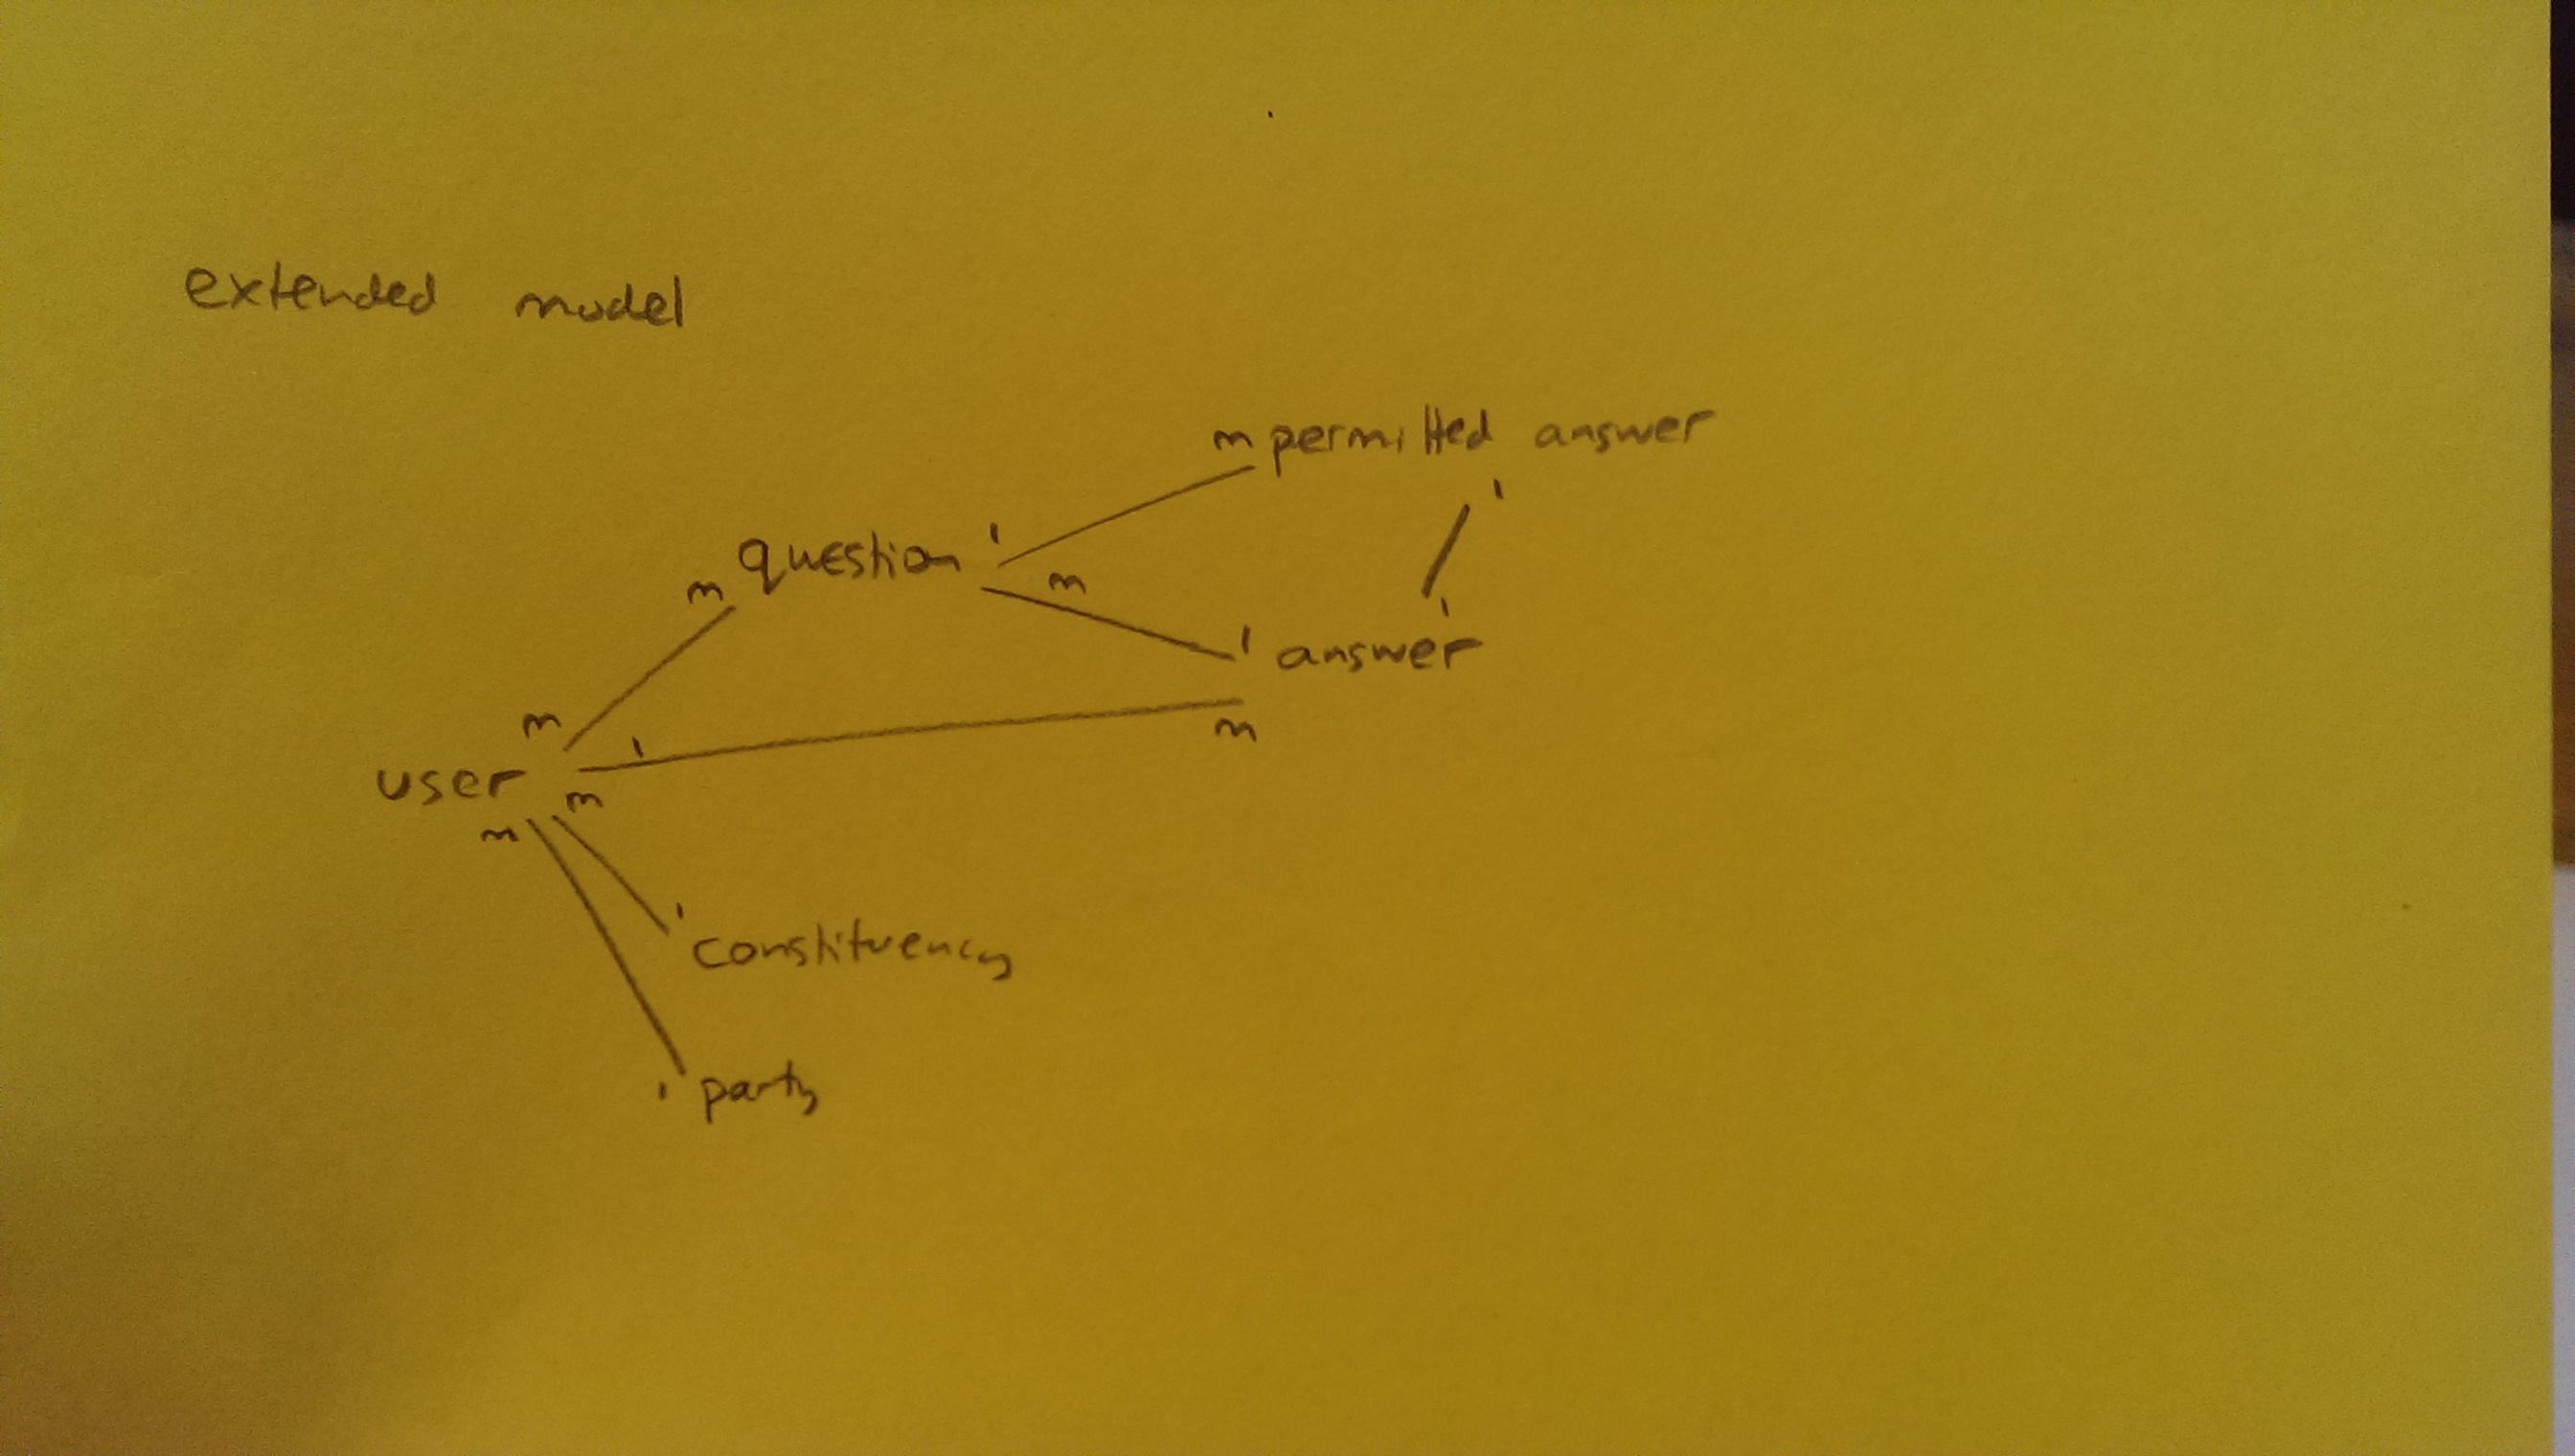 extended model
m permitted answer
1
question 1
m
m
1
1 answer
m
1
m
user m
m
1
constituency
1 party